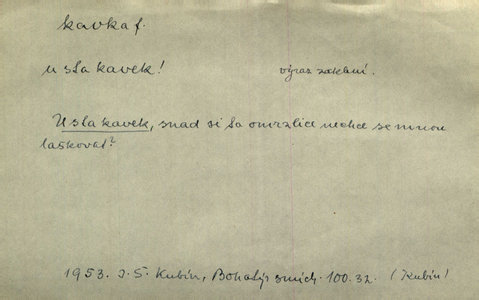 kavka f.
u sta kavek! výraz zaklení.
U sta kavek, snad si ta omrzlice nechce se mnou
laškovat?
1953. J. Š. Kubín, Bohatýr smích. 100.32. (Kubín)